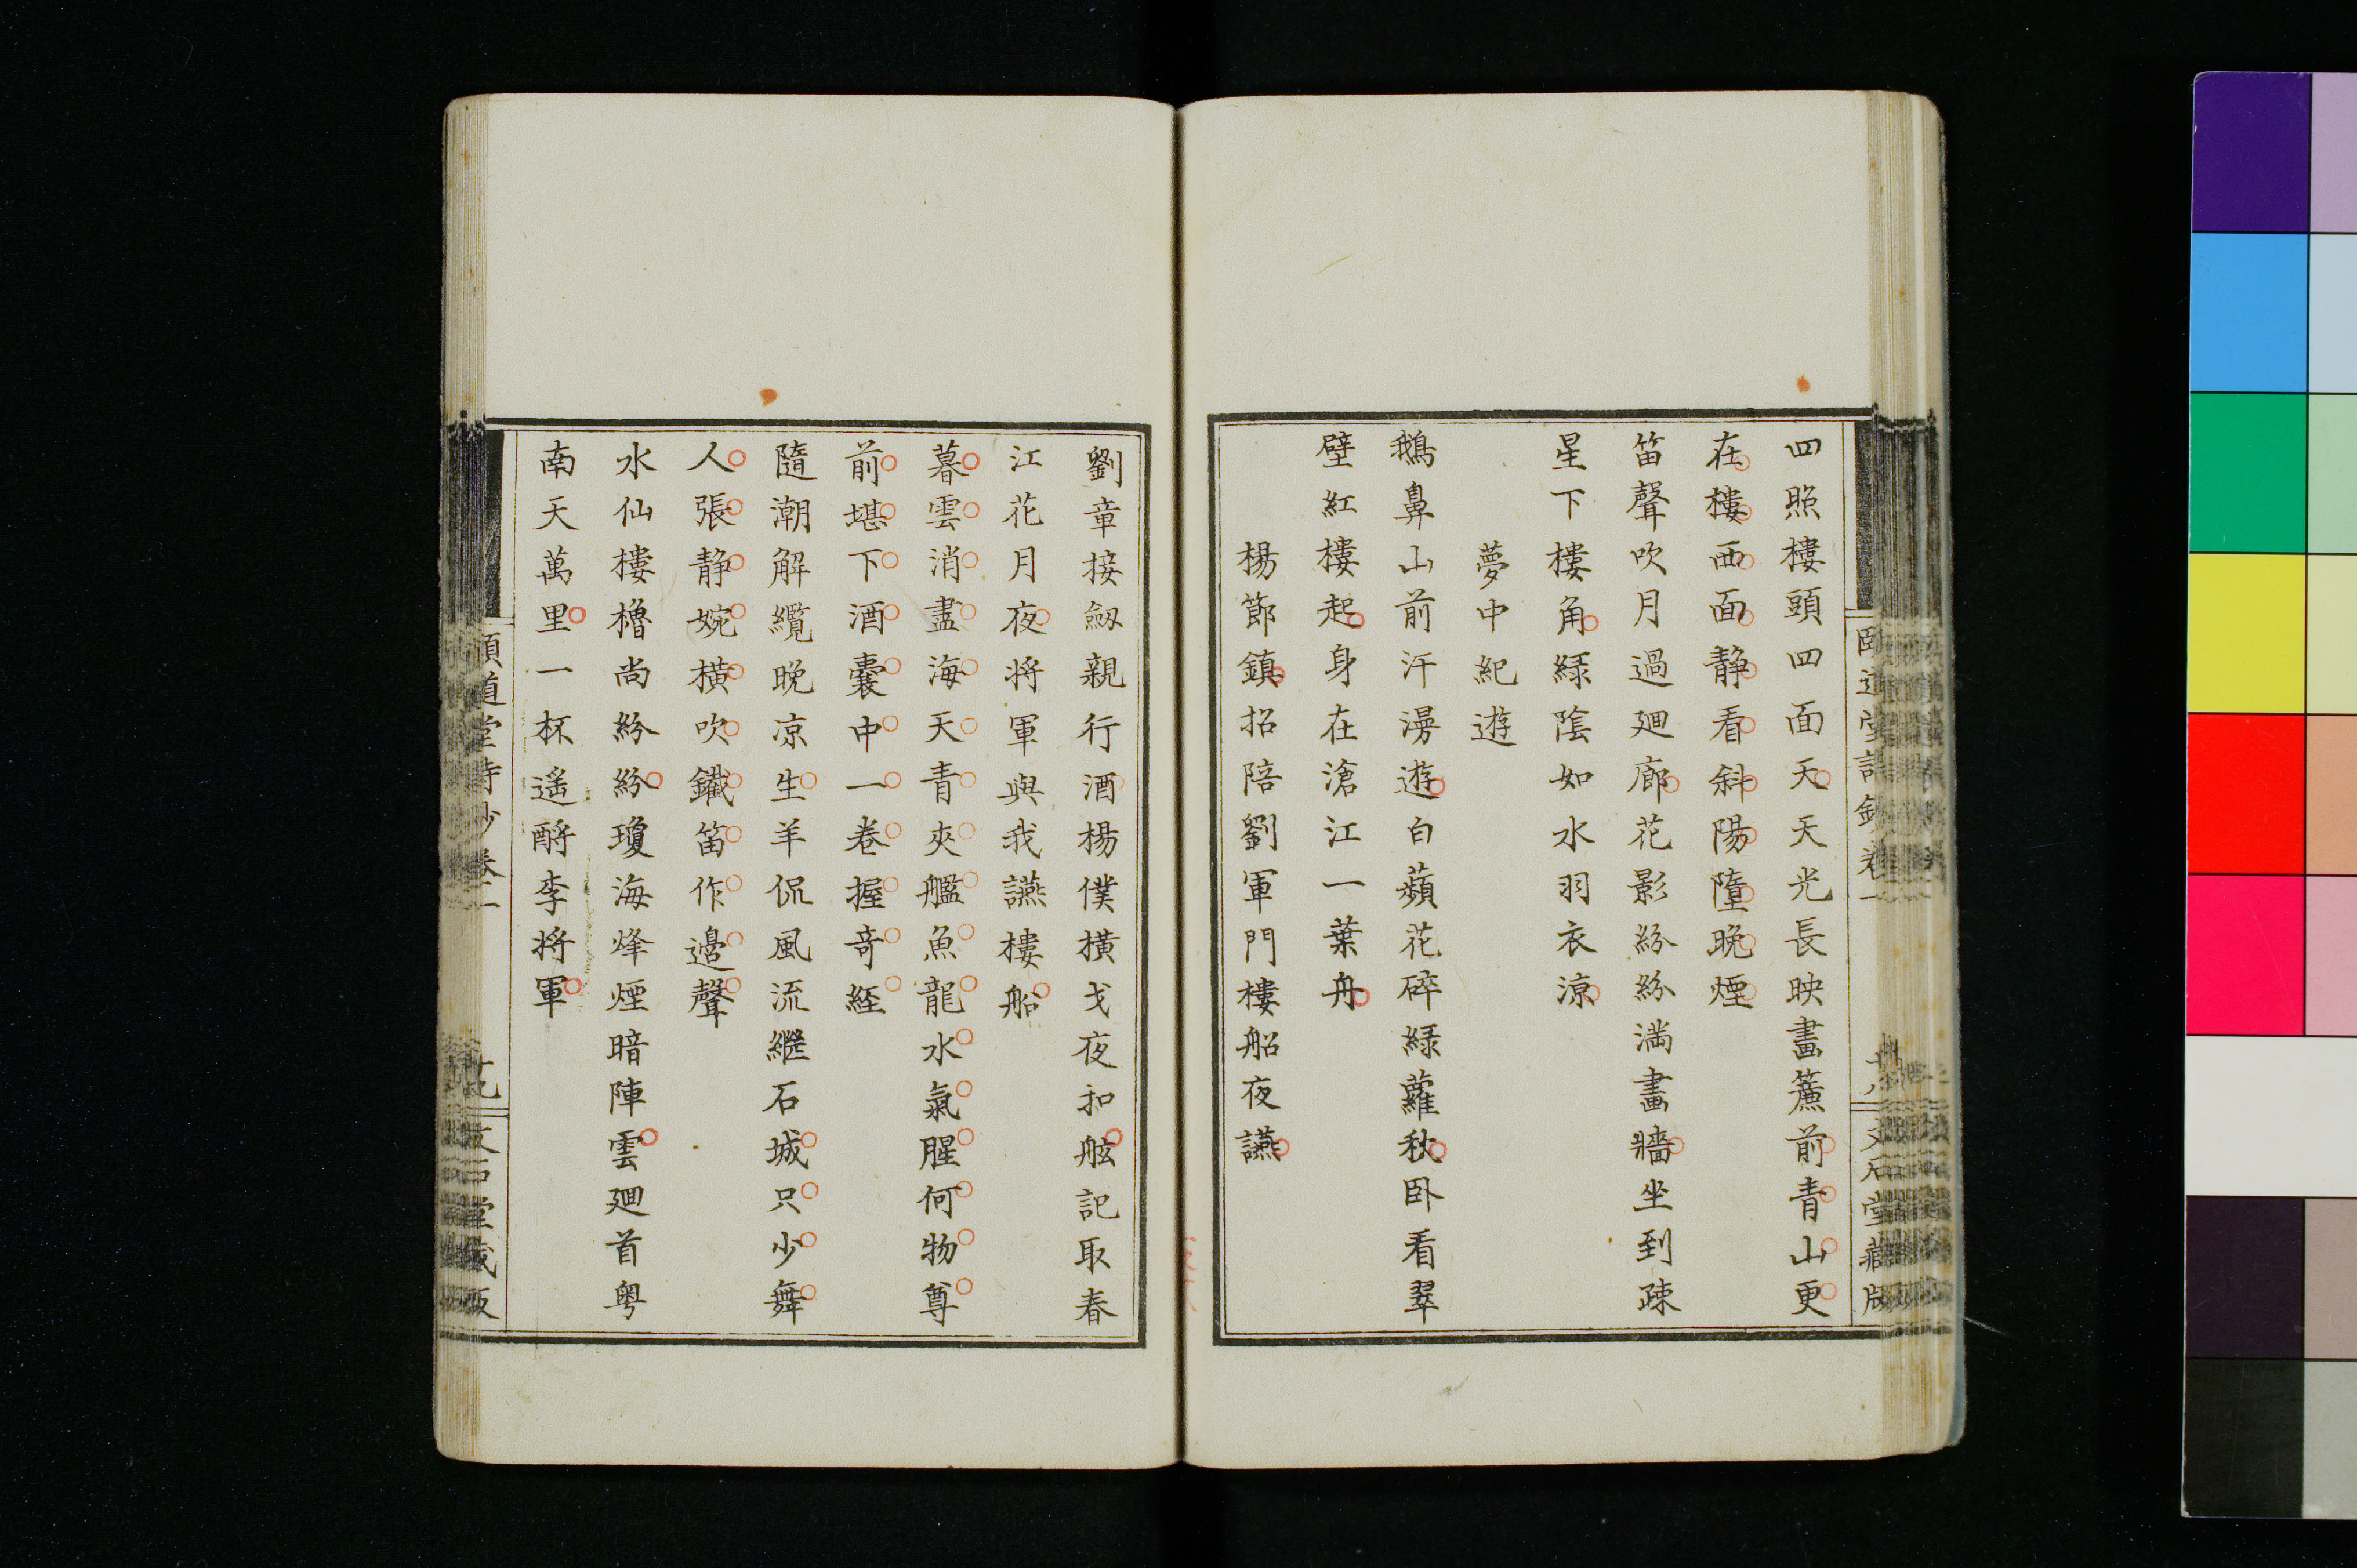 四照樓頭四面天天光長映畫簾前青山更
在樓西面静看斜陽墮晚煙
笛聲吹月過廻廊花影紛紛滿畫牆坐到疎
星下樓角緑陰如水羽衣涼
夢中紀遊
鵝鼻山前汗漫遊白蘋花碎緑蘿秋卧看翠
壁紅樓起身在滄江一葉舟
楊節鎮招陪劉軍門樓船夜讌
劉章接劔親行酒楊僕横戈夜扣舷記取春
江花月夜将軍與我讌樓船
暮雲消盡海天青夾艦魚龍水氣腥何物尊
前堪下酒囊中一卷握奇経
隨潮解纜晚凉生羊侃風流繼石城只少舞
人張静婉横吹鐵笛作邊聲
水仙樓櫓尚紛紛瓊海烽煙暗陣雲廻首粤
南天萬里一杯遥酹李将軍